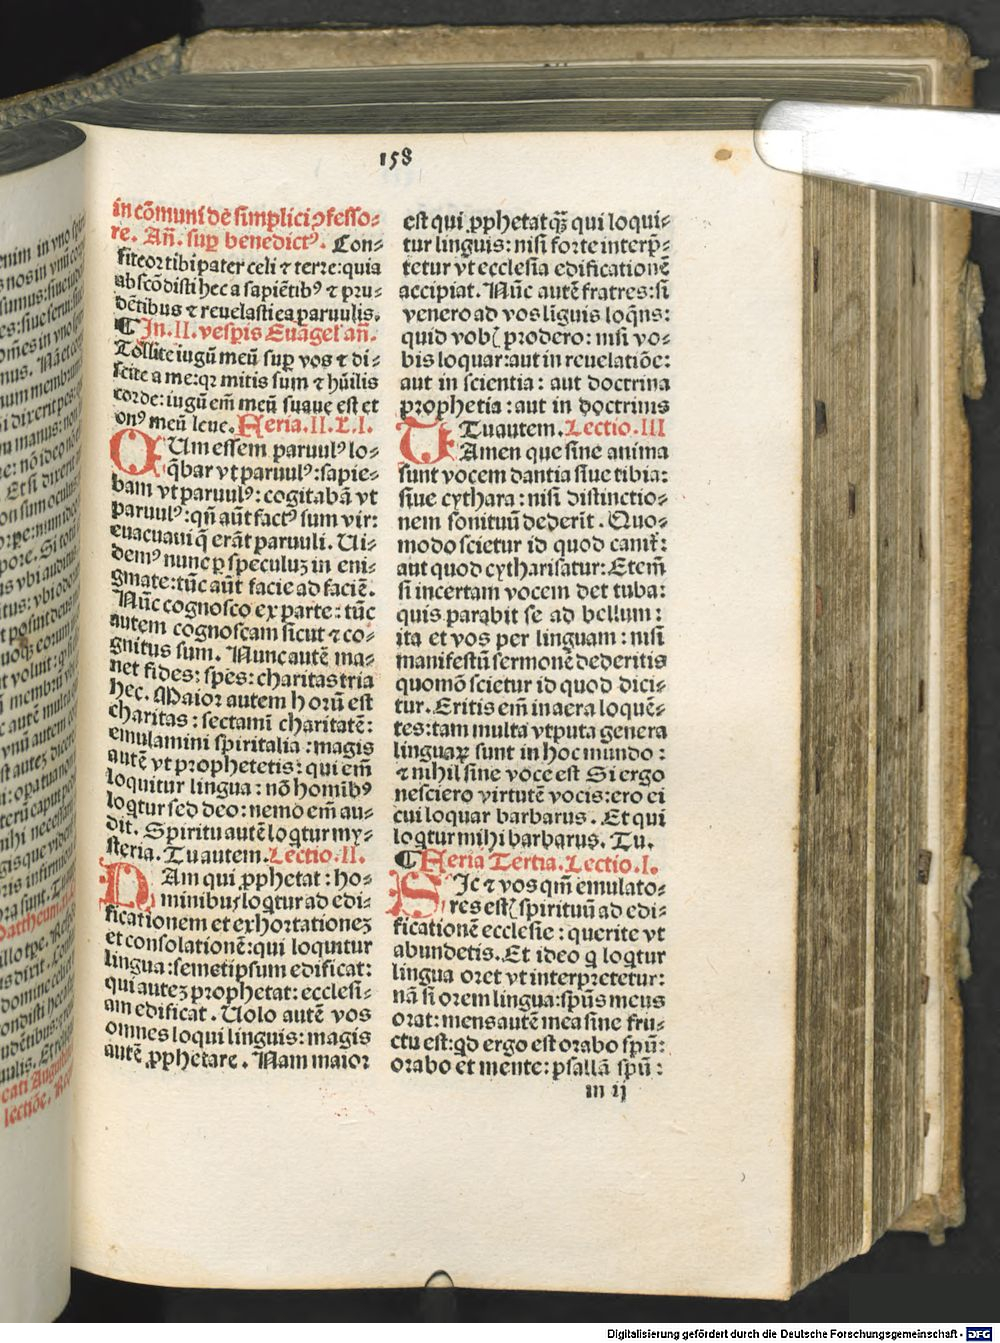 158
in cōmuni de simplici ꝯfesso⸗
re. Añ. suꝑ benedictꝰ. Con⸗
fiteor tibi pater celi ⁊ terre: quia
abscōdisti hec a sapiētibꝰ ⁊ pru⸗
dētibus ⁊ reuelasti ea paruulis.
¶ In. II. vesꝑis Euāgeł añ.
Tollite iugū meū suꝑ vos ⁊ di⸗
scite a me: qꝛ mitis sum ⁊ hūilis
corde: iugū em̄ meū suaue est et
onꝰ meū leue. Feria. II. L. I.
QUm essem paruulꝰ lo⸗
q̄bar vt paruulꝰ: sapie⸗
bam vt paruulꝰ: cogitabā vt
paruulꝰ: qñ aūt factꝰ sum vir:
euacuaui q̄ erāt paruuli. Ui⸗
demꝰ nunc ꝑ speculuꝫ in eni⸗
gmate: tūc aūt facie ad faciē.
Nūc cognosco ex parte: tūc
autem cognoscam sicut ⁊ co⸗
gnitus sum. Nunc autē ma⸗
net fides: spes: charitas tria
hec. Maior autem horū est
charitas: sectami charitatē:
emulamini spiritalia: magis
autē vt prophetetis: qui em̄
loquitur lingua: nō homībꝰ
loqtur sed deo: nemo em̄ au⸗
dit. Spiritu autē loqtur my⸗
steria. Tu autem. Lectio. II.
NAm qui ꝓphetat: ho⸗
minibus loqtur ad edi⸗
ficationem et exhortationeꝫ
et consolationē: qui loquitur
lingua: semetipsum edificat:
qui auteꝫ prophetat: ecclesi⸗
am edificat. Uolo autē vos
omnes loqui linguis: magis
autē ꝓphetare. Nam maior
est qui ꝓphetat qꝫ̄ qui loqui⸗
tur linguis: nisi forte interp̄⸗
tetur vt ecclesia edificationē
accipiat. Nūc autē fratres: si
venero ad vos līguis loq̄ns:
quid vobꝭ prodero: nisi vo⸗
bis loquar: aut in reuelatiōe:
aut in scientia: aut doctrina
prophetia: aut in doctrinis
Tu autem. Lectio. III
TAmen que sine anima
sunt vocem dantia siue tibia:
siue cythara: nisi distinctio⸗
nem sonituū dederīt. Quo⸗
modo scietur id quod canit̄:
aut quod cytharisatur: Etem̄
si incertam vocem det tuba:
quis parabit se ad bellum:
ita et vos per linguam: nisi
manifestū sermonē dederitis
quomō scietur id quod dici⸗
tur. Eritis em̄ in aera loquē⸗
tes: tam multa vt puta genera
linguaꝝ sunt in hoc mundo:
⁊ nihil sine voce est Si ergo
nesciero virtutē vocis: ero ei
cui loquar barbarus. Et qui
loqtur mihi barbarus. Tu.
¶ Feria Tertia. Lectio. I.
SIc ⁊ vos qm̄ emulato⸗
res estꝭ spirituū ad edi⸗
ficationē ecclesie: querite vt
abundetis. Et ideo q loqtur
lingua oret vt interpretetur:
nā si orem lingua: spūs meus
orat: mens autē mea sine fru⸗
ctu est: qd ergo est orabo spū:
orabo et mente: psallā spū:
m ij
Digitalisierung gefördert durch die Deutsche Forschungsgemeinschaft - DFG